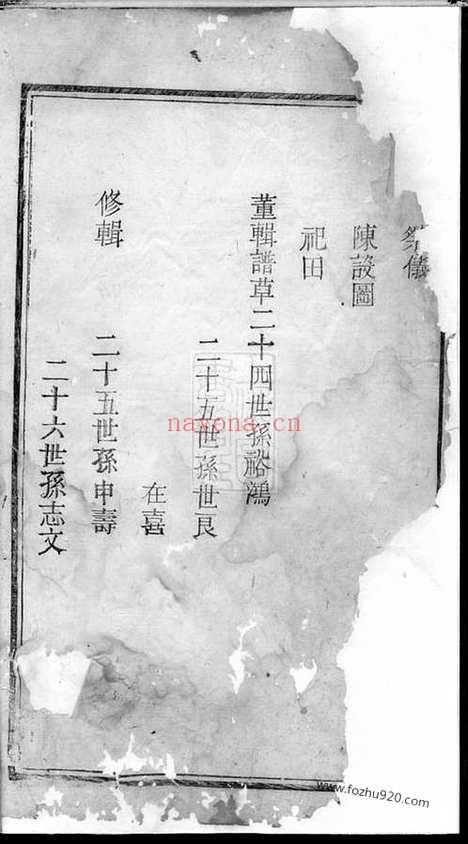 祭儀
陳設圖
祀田
董輯譜草二十四世孫裕鴻
二十五世孫世良
在喜
修輯
二十五世孫申壽
二十六世孫志文
nayona.cn
www.fozhu920.com